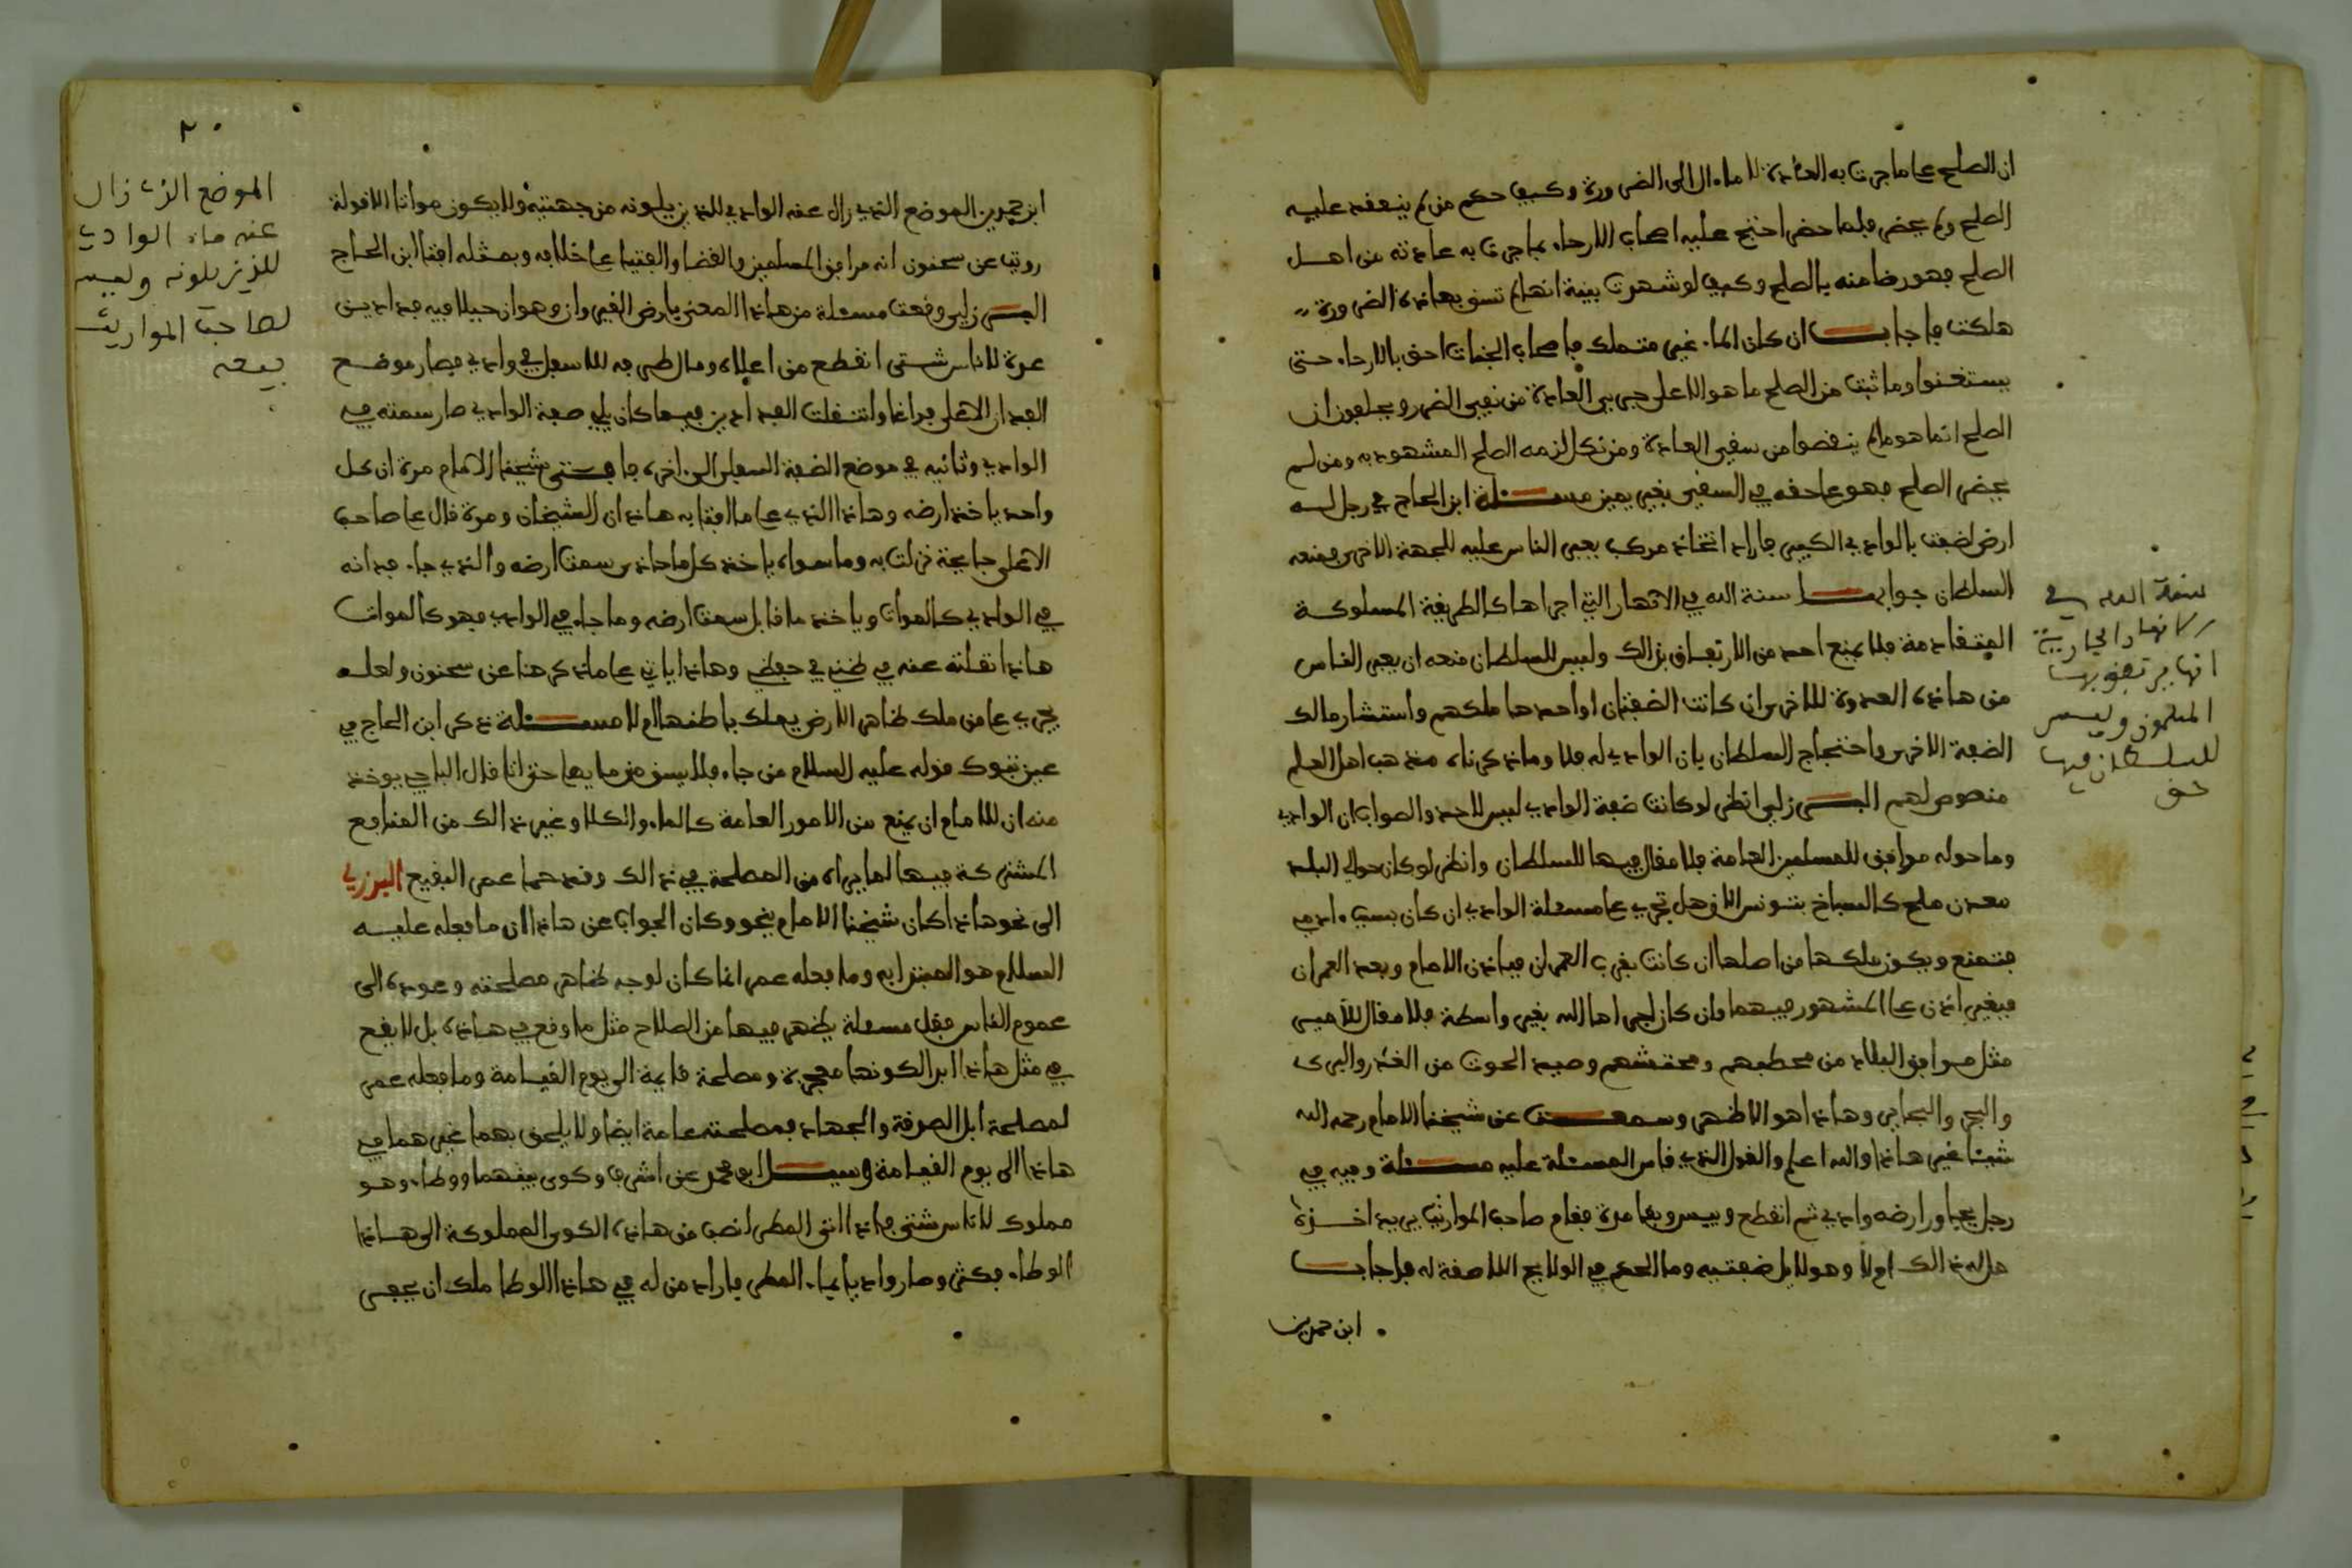 ان الصلح على ما جرت به العادة للماء الا الى الضرورة وكيف حكم من لم ينعقد عليه
الصلح ولم يحضر فلما حضر احتج عليه اصحاب الارحاء بما جرت به عادته من اهل
الصلح فهو رضا منه بالصلح وكيف لو شهدت بينة انها لم تسق بهاذه الضرورة
هلكت فاجاب ان كان الماء غير متملك فاصحاب الجنات احق بالارحاء حتى
يستغنوا وما ثبت من الصلح ما هو الا على جري العادة من نفي الضرر ويحلفون ان
الصلح انما هو ما لم ينقصوا من سقي العادة ومن نكل لزمه الصلح المشهود به ومن لم
يحضر الصلح فهو على حقه في السقي بغير يمين مسئلة ابن الحاج في رجل له
ارض لصقت بالوادي الكبير فاراد اتخاذ مركب يعبر الناس عليه للجهة الاخرى فمنعه
السلطان جوابها سنة الله في الانهار التي اجراها كالطريقة المسلوكة
المتقادمة فلا يمنع احد من الارتفاق بذالك وليس للسلطان منعه ان يعبر الناس
من هاذه العدوة للاخرى ان كانت الضفتان او احدهما ملكهم واستشار مالك
الضفة الاخرى واحتجاج السلطان بان الوادي له فلا وما ذكرناه مذهب اهل العلم
منصوص لهم البرزلي انظر لو كانت ضفة الوادي ليس لاحد والصواب ان الوادي
وما حوله مرافق للمسلمين العامة فلا مقال فيها للسلطان وانظر لو كان حوالي البلد
معدن ملح كالسباخ بتونس الان هل تجري على مسئلة الوادي ان كان بسبب ادمي
فتمنع ويكون ملكها من اصلها ان كانت بقرب العمران فباذن الامام وبعد العمران
فبغير اذن على المشهور فيهما وان كان اجراها الله بغير واسطة فلا مقال للامير
مثل مرافق البلاد من محطبهم ومحتشهم وصيد الحوت من الغدر والبرك
والبحر والبحاير وهاذا هو الاظهر وسمعت عن شيخنا الامام رحمه الله
شيئا غير هاذا والله اعلم والقول الذي قاس المسئلة عليه مسئلة وفيه في
رجل يجاور ارضه وادي ثم انقطع ويبس وبقا مدة فقام صاحب المواريث يريد اخذه
هل له ذالك ام لا وهو لا يلي ضفتيه وما الحكم في الولايج اللاصقة له فاجاب
ابن حمدين
سنة الله في
الانهار الجارية
انها يرتفق بها
المسلمون وليس
للسلطان فيها
حق
٢٠
ابن حمدين الموضع الذي زال عنه الوادي للذين يلونه من جهتيه ولا يكون مواتا الا قولة
رويت عن سحنون انه مرافق المسلمين والقضا والفتيا على خلافه وبمثله افتا ابن الحاج
البرزلي وقعت مسئلة من هاذا المعنى بارض القيروان وهو ان جبلا فيه فدادين
عدة لاناس شتى انقطع من اعلاه ومال طرفه للاسفل في وادي فصار موضع
الفدان الاعلى فراغا وانتقلت الفدادين فيما كان يلي ضفة الوادي صار سمته في
الوادي وثانيه في موضع الضفة السفلى الى اخره فافتى شيخنا الامام مرة ان كل
واحد ياخذ ارضه وهاذا الذي على ما افتا به هاذان الشيخان ومرة قال على صاحب
الاعلى جايحة نزلت به وما سواه ياخذ كل ما حاذى سمت ارضه والذي جاء فدانه
في الوادي كالموات وياخذ ما قابل سمت ارضه وما جاء في الوادي فهو كالموات
هاذا نقلته عنه في ظني في حفظي وهاذا ياتي على ما ذكر هنا عن سحنون ولعله
يجري على من ملك ظاهر الارض يملك باطنها ام لا مسئلة ذكر ابن الحاج في
عين تبوك قوله عليه السلام من جاء فلا يسق من مايها حتى اتا قال الباجي يوخذ
منه ان للامام ان يمنع من الامور العامة كالماء والكلا وغير ذالك من المنافع
المشتركة فيها لما يراه من المصلحة في ذالك وقد حما عمر البقيع البرزلي
الى نحو هاذا كان شيخنا الامام ينحو وكان الجواب عن هاذا ان ما فعله عليه
السلام هو المبتدا به وما فعله عمر انما كان لوجه ظاهر مصلحته وعوده الى
عموم الناس فقل مسئلة يظهر فيها من الصلاح مثل ما وقع في هاذه بل لا يقع
في مثل هاذا ابدا لكونها معجزة ومصلحة قايمة الى يوم القيامة وما فعله عمر
لمصلحة ابل الصدقة والجهاد فمصلحته عامة ايضا ولا يلحق بهما غيرهما في
هاذا الى يوم القيامة وسيل ابو محمد عن اشرف وكدى بينهما ووطاء وهو
مملوك لاناس شتى فاذا اتى المطر انصب من هاذه الكدى المملوكة الى هاذا
الوطاء فكثر وصار واديا بماء المطر فاراد من له في هاذا الوطا ملك ان يحبس
الموضع الذي زال
عنه ماء الوادي
للذين يلونه وليس
لصاحب المواريث
بيعه